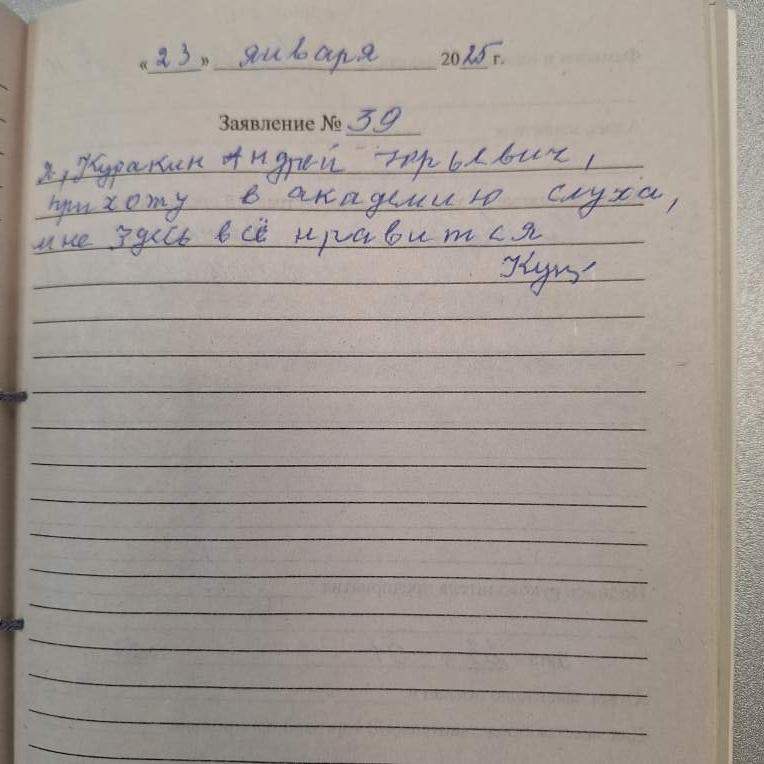 «23» января 2025 г.
Заявление № 39
Я, Куракин Андрей Юрьевич,
прихожу в академию слуха,
мне здесь всё нравится